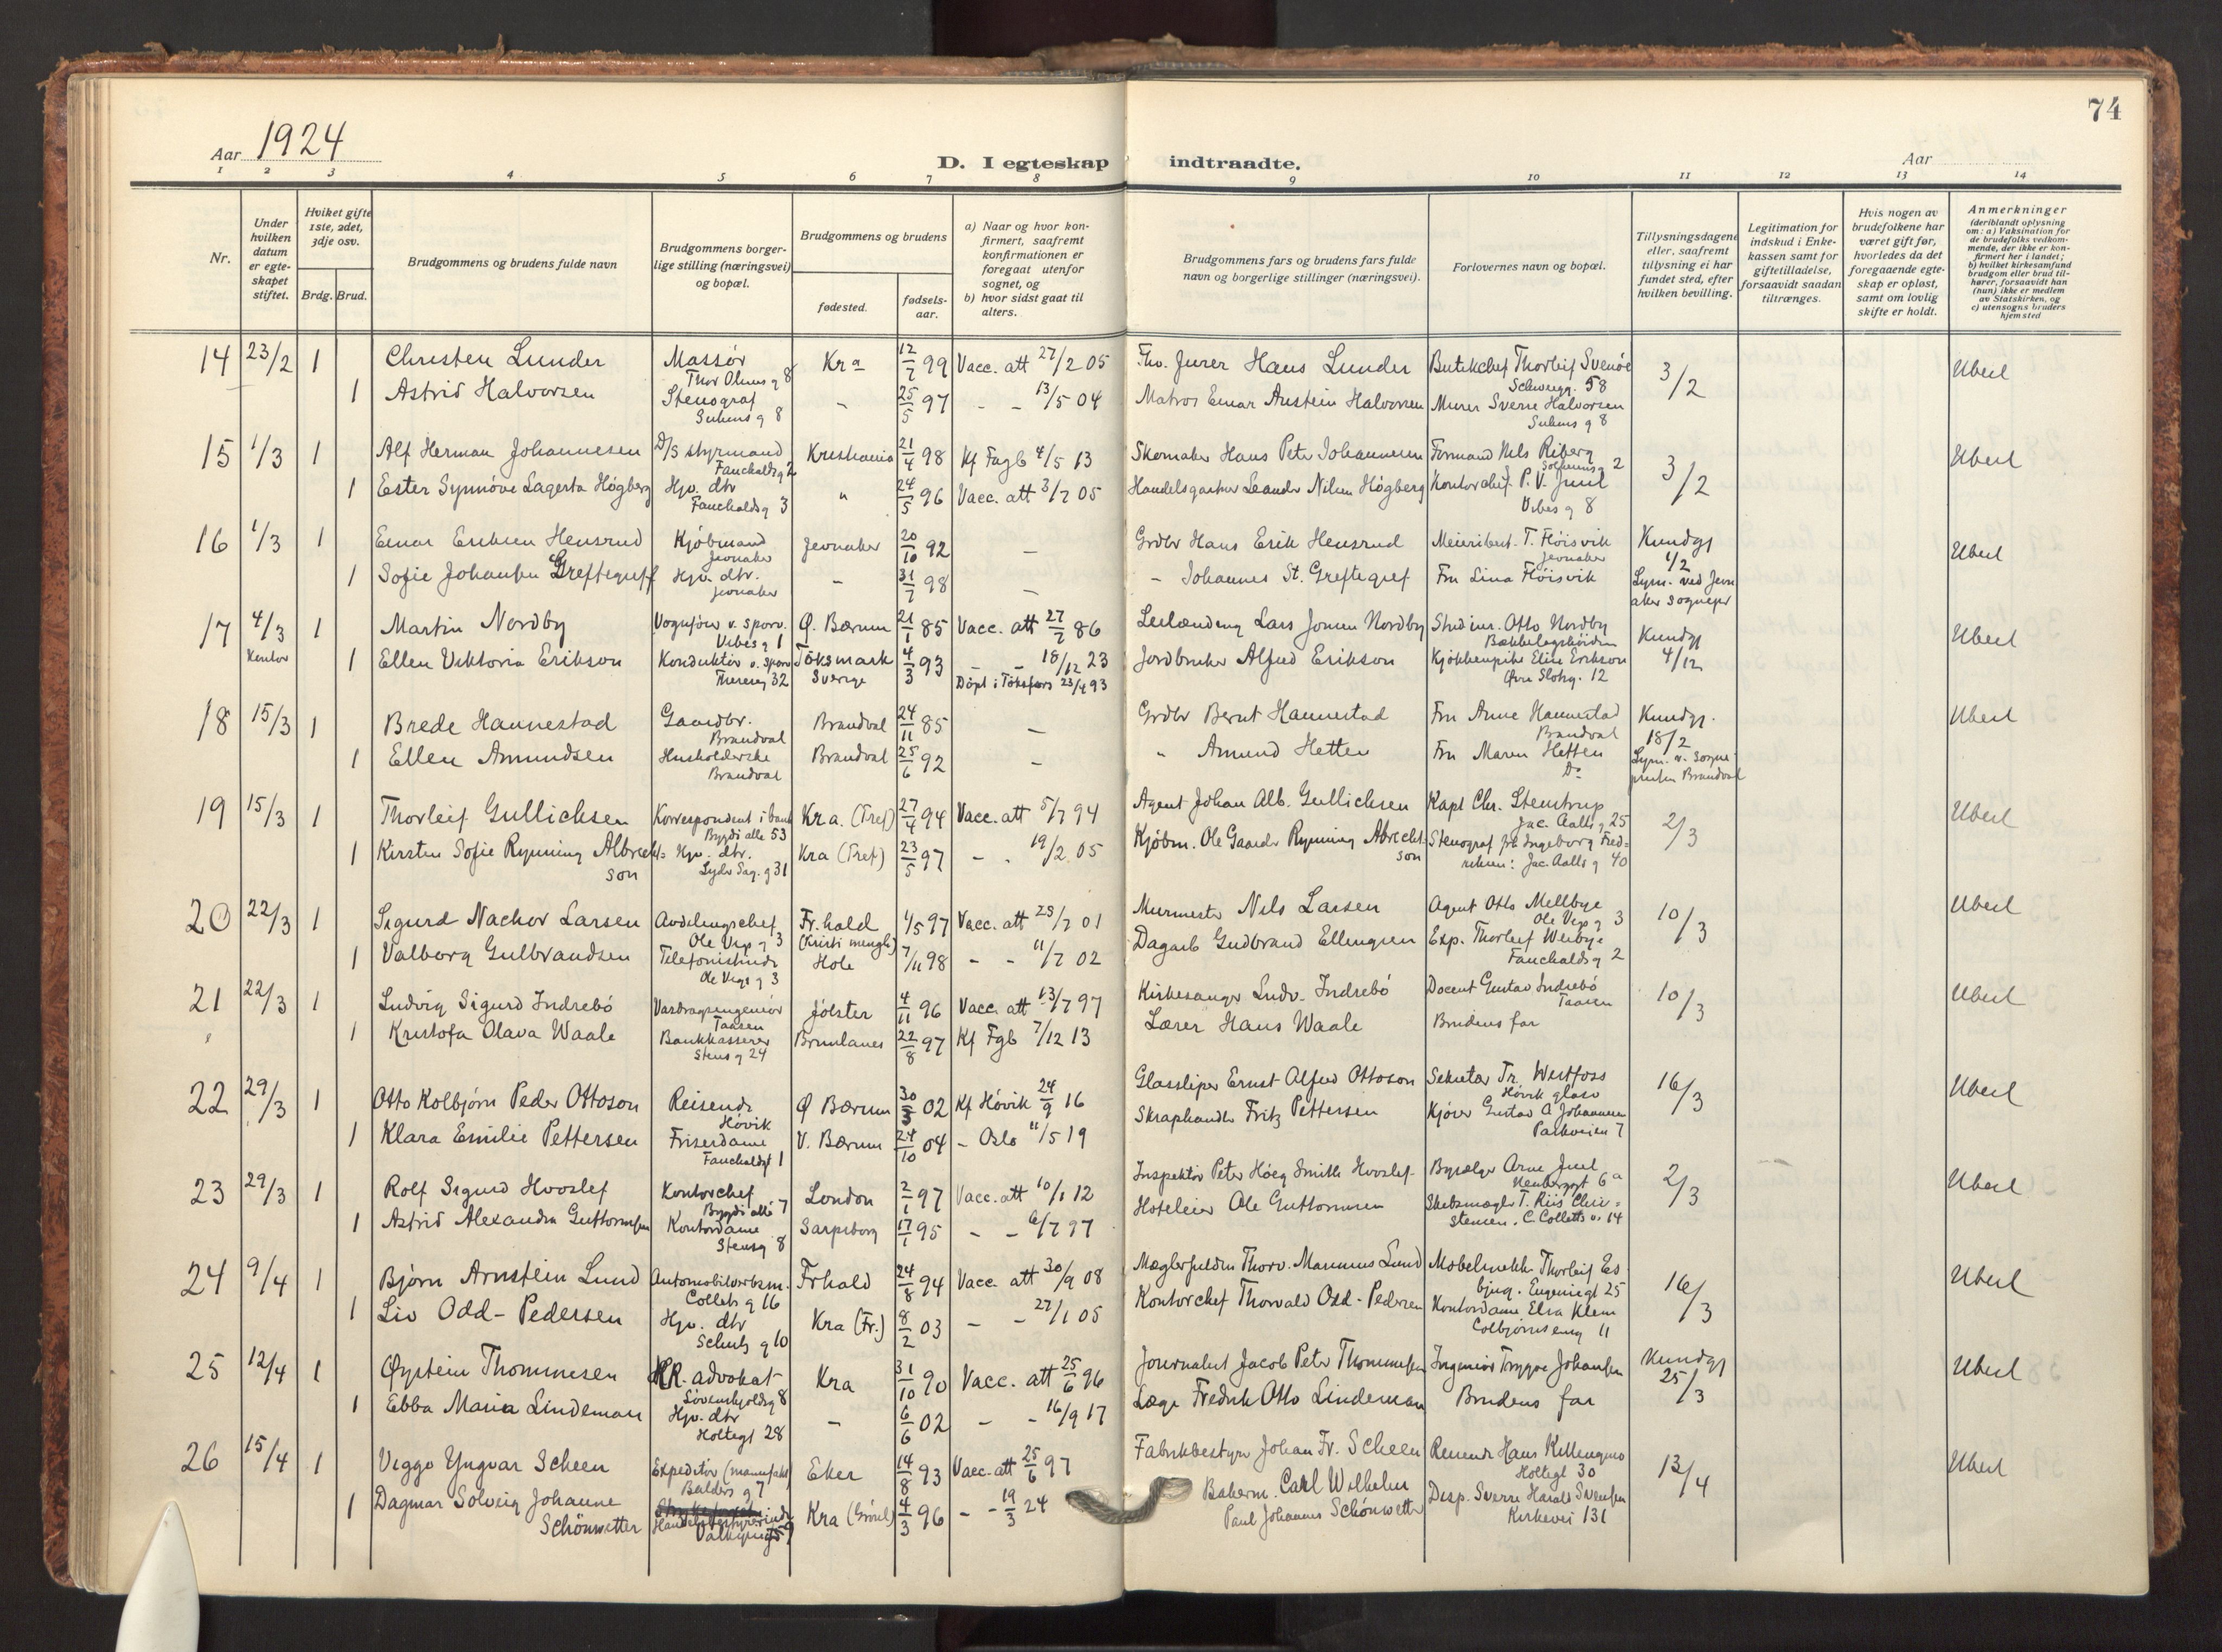 74
Aar 1924
D. I egteskap indtraadte.
Aar
1 2 3 4 5 6 7 8 9 10 11 12 13 14
Nr.
Under hvilken datum er egte-skapet stiftet.
Hviket gifte 1ste, 2det, 3dje osv.
Brdg. Brud.
Brudgommens og brudens fulde navn
Brudgommens borger-lige stilling (næringsvei) og bopæl.
Brudgommens og brudens
fødested.
fødsels-aar.
a) Naar og hvor kon-firmert, saafremt konfirmationen er foregaat utenfor sognet, og
b) hvor sidst gaat til alters.
Brudgommens fars og brudens fars fulde navn og borgerlige stillinger (næringsvei).
Forlovernes navn og bopæl.
Tillysningsdagene eller, saafremt tillysning ei har fundet sted, efter hvilken bevilling.
Legitimation for indskud i Enke-kassen samt for giftetilladelse, forsaavidt saadan tiltrænges.
Hvis nogen av brudefolkene har været gift før, hvorledes da det foregaaende egte-skap er opløst, samt om lovlig skifte er holdt.
Anmerkninger (deriblandt oplysning om: a) Vaksination for de brudefolks vedkom-mende, der ikke er kon-firmert her i landet; b) hvilket kirkesamfund brudgom eller brud til-hører, forsaavidt han (hun) ikke er medlem av Statskirken, og c) utensogns bruders hjemsted
14 23/2 1 Christen Lunder Massør Kra 12/7 99 Vacc. att 27/2 05 Hans Lunder Butikchef Thorleif Svenøe 3/2 Ubeil
Thor Olsens g 8 Schweigg. 58
1 Astrid Halvorsen Stenograf - 25/5 97 - - 13/5 04 Matros Einar Anstein Halvorsen Murer Sverre Halvorsen
Suhms g 8 Suhms g 8
15 1/3 1 Alf Herman Johannesen D/S styrmand Kristiania 21/4 98 Kf Fagb 4/5 13 Skomaker Hans Peter Johannesen Formand Nils Riberg 3/2 Ubeil
Fauchaldsg 2 Solheimsg 2
1 Ester Synnöve Lagerta Högberg Hjv. dtr " 24/5 96 Vacc. att 3/7 05 Handelsgartner Leander Nilsen Högberg Kontorchef P. V. Juul
Fauchaldsg 3 Vibes g 8
16 1/3 1 Einar Eriksen Hensrud Kjöbmand Jevnaker 20/10 92 - Grdbr Hans Erik Hensrud Meieribest. T. Flöisvik Kundgj 1/2 Ubeil
Jevnaker Jevnaker
1 Sofie Johansen Greftegreff Hjv. dtr. - 31/7 98 - - Johannes St. Greftegref Fru Lina Flöisvik Lysn. ved Jevn
Jevnaker aker sognepr
17 4/3 1 Martin Nordby Vognförer v. sporv. Ø. Bærum 21/1 85 Vacc. att 27/7 86 Leilænding Lars Jonsen Nordby Otto Nordby Kundgj 4/12 Ubeil
Kontor Vibesg 1 Bækkelagshöiden
1 Ellen Viktoria Erikson Konduktör v. sporv Töksmark 4/3 93 - - 18/12 23 Jordbruker Alfred Erikson Kjökkenpike Elise Erikson
Theresesg 32 Sverige Döpt i Töksfors 23/4 93 Øvre Slotsg. 12
18 15/3 1 Brede Hannestad Gaardbr. Brandval 24/11 85 - Grdbr Bernt Hannestad Fru Anne Hannestad Kundgj. 18/2 Ubeil
Brandval Brandval
1 Ellen Amundsen Husholderske Brandval 25/6 92 - " Amund Hetten Fru Maren Hetten Lysn. v. sogne
Brandval Do presten Brandval
19 15/3 1 Thorleif Gullichsen Korrespondent i bank Kra. (Tref) 27/4 94 Vacc. att 5/7 94 Agent Johan Alb. Gullichsen Kapt Chr. Stenstrup 2/3 Ubeil
Bygdö alle 53 Jac. Aalls g 25
1 Kirsten Sofie Rynning Albrecht= Hjv. dtr. Kra (Tref) 23/5 97 - - 19/2 05 Kjøbm. Ole Gaarder Rynning Abrecht= Stenograf frk Ingeborg Fred=
son Lyder Sag. g 31 son riksen: Jac. Aalls g 40
20 22/3 1 Sigurd Nachor Larsen Avdelingschef Fr.hald 4/5 97 Vacc. att 28/7 01 Murmester Nils Larsen Agent Otto Mellbye 10/3 Ubeil
Ole Vigs g 3 (Kristi mengh) Ole Vigs g 3
1 Valborg Gulbrandsen Telefonistinde Hole 7/11 98 - - 11/7 02 Dagarb Gudbrand Ellengsen Exp. Thorleif Weibye
Ole Vigs g 3 Fauchaldsg 2
21 22/3 1 Ludvig Sigurd Indrebö Vasdragsingeniör Jölster 4/11 96 Vacc. att 13/7 97 Kirkesanger Ludv. Indrebö Docent Gustav Indrebö 10/3 Ubeil
Taasen Taasen
1 Kristofa Olava Waale Bankkasserer Brunlanes 22/8 97 Kf Fgb 7/12 13 Lærer Hans Waale Brudens far
Stens g 24
22 29/3 1 Otto Kolbjörn Peder Ottoson Reisende Ø Bærum 30/3 02 Kf Hövik 24/9 16 Glassliper Ernst Alfred Ottoson Sekretær Tr. Westfoss 16/3 Ubeil
Hövik Hövik glasv
1 Klara Emilie Pettersen Friserdame V. Bærum 24/10 04 - Oslo 11/5 19 Skraphandler Fritz Pettersen Kjörer Gustav A Johannesen
Fauchaldsgt 1 Parkveien 7
23 29/3 1 Rolf Sigurd Hvoslef Kontorchef London 2/1 97 Vacc. att 10/1 12 Inspektör Peter Höeg Smith Hvoslef Byselger Arne Juel 2/3 Ubeil
Bygdö allé 7 Neuberggt 6a
1 Astrid Alexandra Guttormsen Kontordame Sarpsborg 17/1 95 - - 6/7 97 Hoteleier Ole Guttormsen Skibsmægler T. Riis Chri=
Stensg 8 stensen. C. Colletts v. 14
24 9/4 1 Björn Arnstein Lund Automobilverksm. Frhald 24/8 94 Vacc. att 30/9 08 Mæglerfuldm Thorv. Marinus Lund Møbelsnekk. Thorleif Es 16/3 Ubeil
Collets g 16 bjug. Eugeniegt 25
1 Liv Odd-Pedersen Hjv. dtr Kra (Fr.) 8/2 03 - - 27/1 05 Kontorchef Thorvald Odd-Pedersen Kontordame Elsa Klem
Schultz g 10 Colbjörnsensg 11
25 12/4 1 Øystein Thommesen HR. advokat Kra 31/10 90 Vacc. att 25/6 96 Journalist Jacob Peter Thommesen Ingeniör Trygve Johansen Kundgj 25/3 Ubeil
Lövenskjoldsg 8
1 Ebba Maria Lindeman Hjv. dtr - 6/6 02 - - 16/9 17 Læge Fredrik Otto Lindeman Brudens far
Holtegt 28
26 15/4 1 Viggo Yngvar Scheen Expeditör (manufakt) Eker 14/8 93 Vacc. att 25/6 97 Fabrikbestyrer Johan Fr. Scheen Reisende Hans Killengmo 13/4 Ubeil
Balders g 7 Holtegt 30
1 Dagmar Solveig Johanne Handelsbestyrerinde Kra (Gamleb) 4/3 96 - - 19/3 24 Bakerm. Carl Wilhelm Disp. Sverre Harald Svensen
Schönwetter Paul Johannes Schönwetter Kirkevei 131